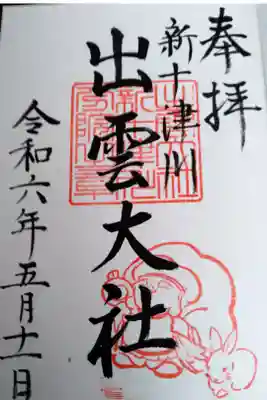 奉拝
新十津川
出雲大社
令和六年五月十一日